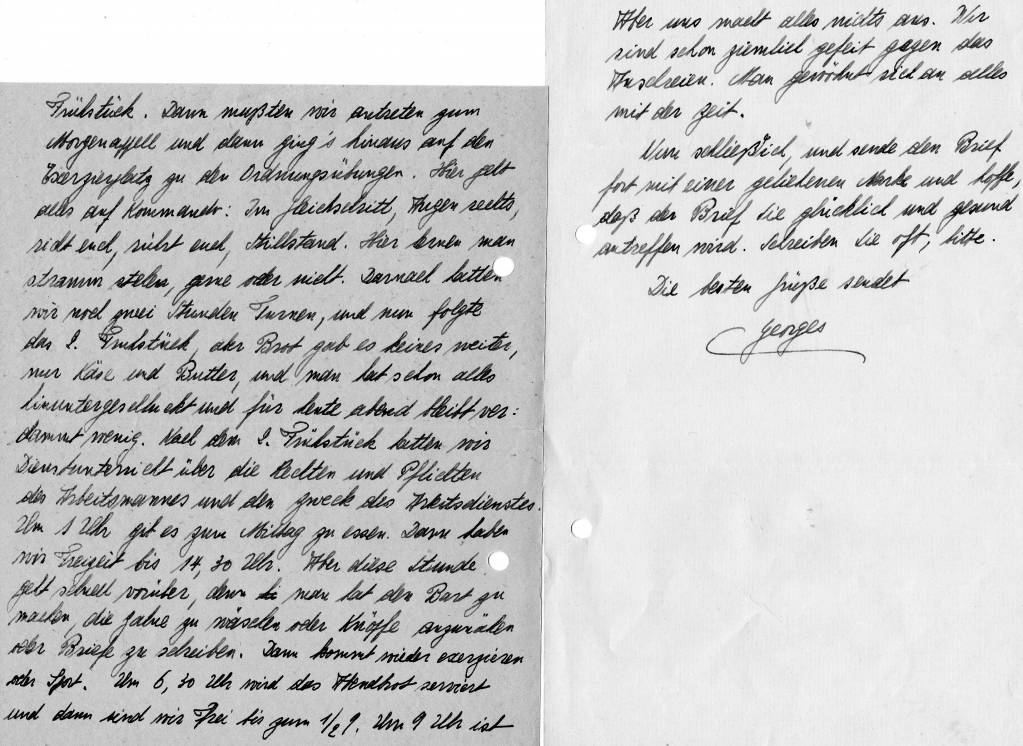 Frühstück. Dann mußten wir antreten zum
Morgenappell und dann ging's hinaus auf den
Exerzierplatz zu den Ordnungsübungen. Hier geht
alles auf Kommando: Im Gleichschritt, Augen rechts,
richt euch, rührt euch, Stillstand. Hier lernen man
stramm stehen, gerne oder nicht. Darnach hatten
wir noch zwei Stunden Turnen, und nun folgte
das 2. Frühstück, aber Brot gab es keines weiter,
nur Käse und Butter, und man hat schon alles
hinuntergeschluckt und für heute abend bleibt ver:
dammt wenig. Nach dem 2. Frühstück hatten wir
Dienstunterricht über die Rechten und Pflichten
des Arbeitsmannes und den Zweck des Arbeitsdienstes.
Um 1 Uhr git es zum Mittag zu essen. Dann haben
wir Freizeit bis 14,30 Uhr. Aber diese Stunde
geht schnell vorüber, denn man hat den Bart zu
machen, die Zähne zu wäschen oder Knöpfe anzunähen
oder Briefe zu schreiben. Dann kommt wieder exerzieren
oder Sport. Um 6,30 Uhr wird das Abendbrot serviert
und dann sind wir frei bis zum 1/2 9. Um 9 Uhr ist
Aber uns macht alles nichts aus. Wir
sind schon ziemlich gefeit gegen das
Anschreien. Man gewöhnt sich an alles
mit der Zeit.
Nun schließ ich, und sende den Brief
fort mit einer geliehenen Marke und hoffe,
daß der Brief Sie glücklich und gesund
antreffen wird. Schreiben Sie oft, bitte.
Die besten Grüße sendet
Georges